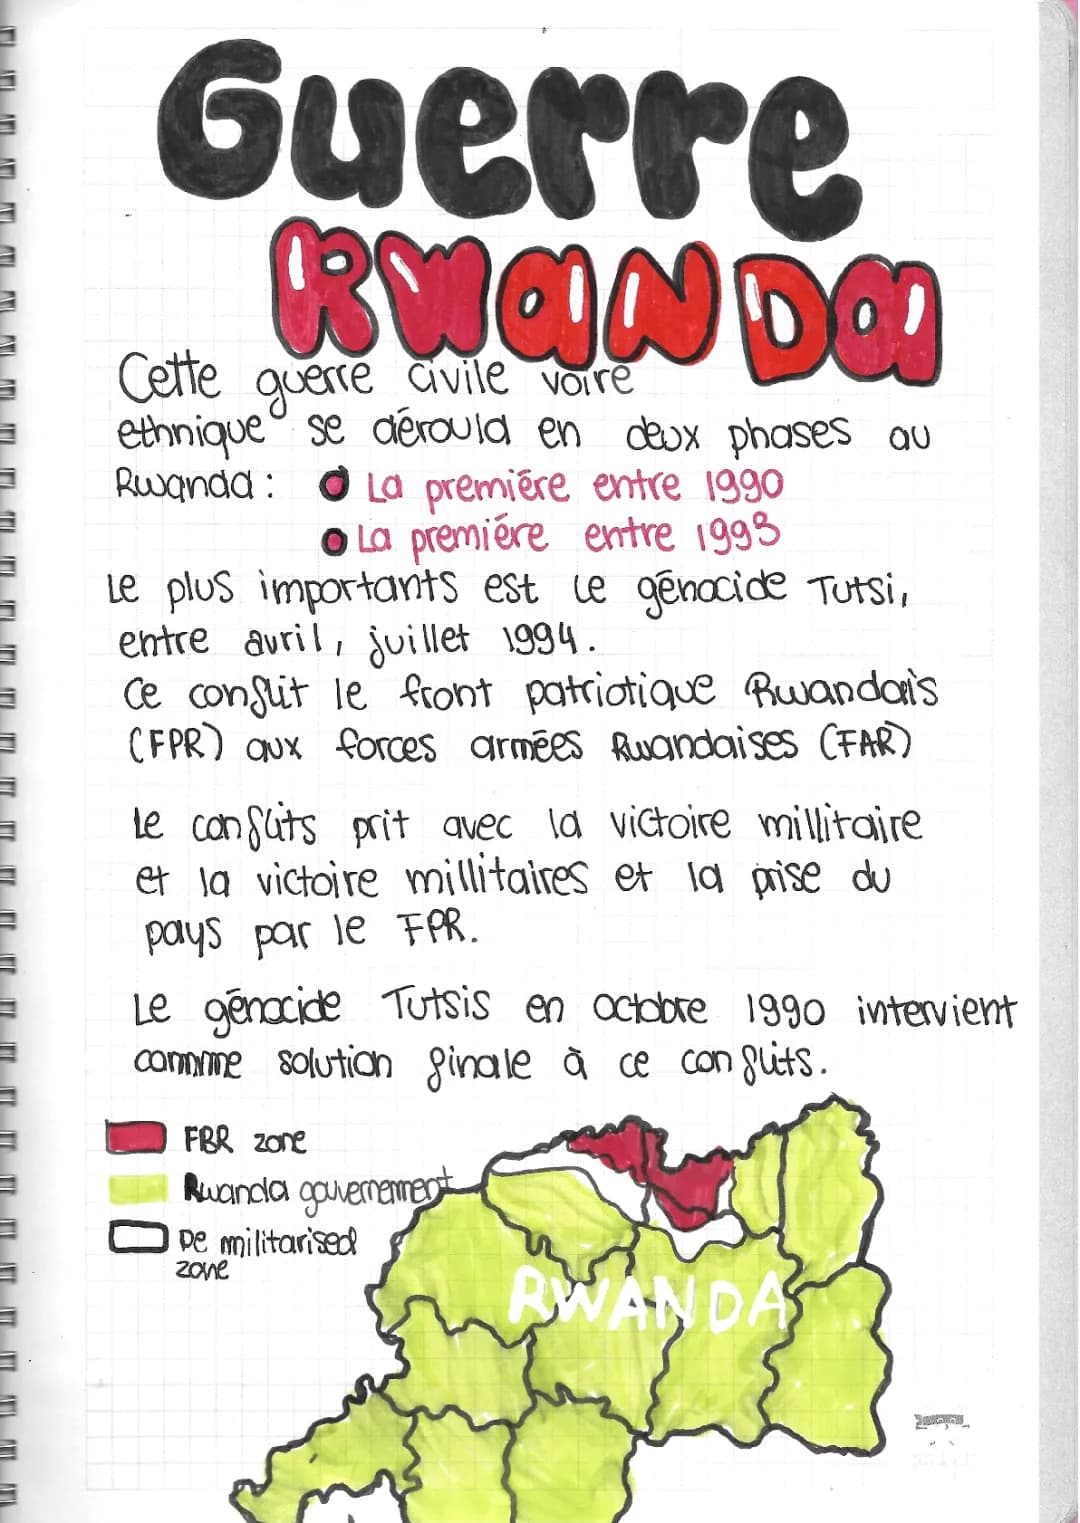 Guerre
RWANDA
Cette guerre civile voire
ethnique se déroula en deux phases au
Rwanda : La premiére entre 1990
La premiére entre 1993
Le plus importants est le génocide Tutsi,
entre avril, juillet 1994.
Ce conflit le front patriotique Rwandais
(FPR) aux forces armées Rwandaises (FAR)
Le conflits prit avec la victoire millitaire
et la victoire millitaires et la prise du
pays par le FPR.
Le génocide Tutsis en octobre 1990 intervient
comme solution finale à ce conflits.
FBR zone
Rwanda gouvernement
De militarised
zone
RWANDA